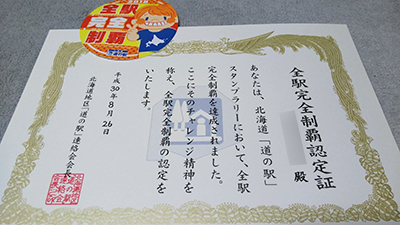 2018
全駅
完全
制覇
全駅完全制覇認定証
殿
あなたは、北海道「道の駅」
スタンプラリーにおいて、全駅
完全制覇を達成されました。
ここにそのチャレンジ精神を
称え、全駅完全制覇の認定を
いたします。
平成30年8月26日
北海道地区「道の駅」連絡会会長